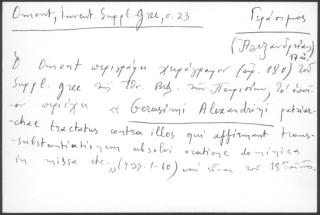 Omont, Invent. Suppl. Grec, σ. 23
Γεράσιμος
(Ἀλεξανδρείας)
Ὁ Omont περιγράφει χειρόγραφον (ἀρ. 180) τοῦ
Suppl. grec τῆς Ἐθν. Βιβ. τῶν Παρισίων, τὸ ὁποῖ-
ον περιέχει « Gerasimi Alexandrini patriar-
chae tractatus contra illos qui affirmant trans-
substantiationem absolvi oratione dominica
in missa etc.,, (σσ. 1-60) καὶ εἶναι τοῦ 18ου αἰῶνος.